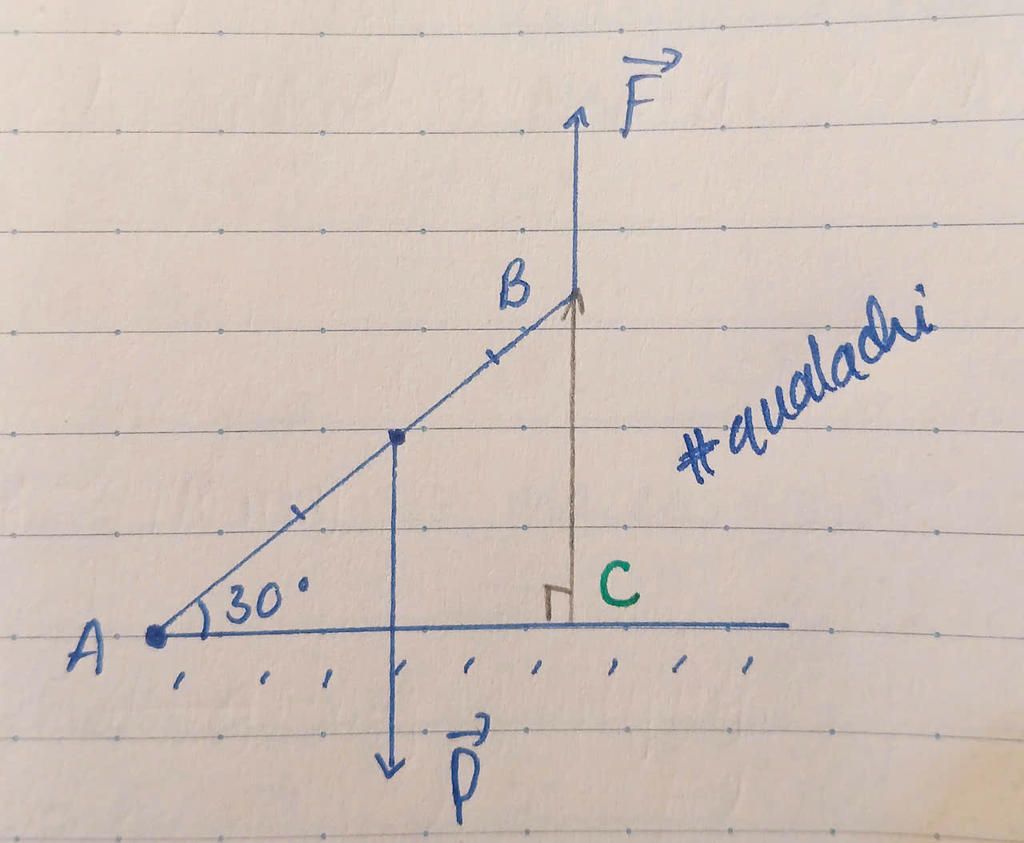 F
B
#qualachi
30°
C
A
P